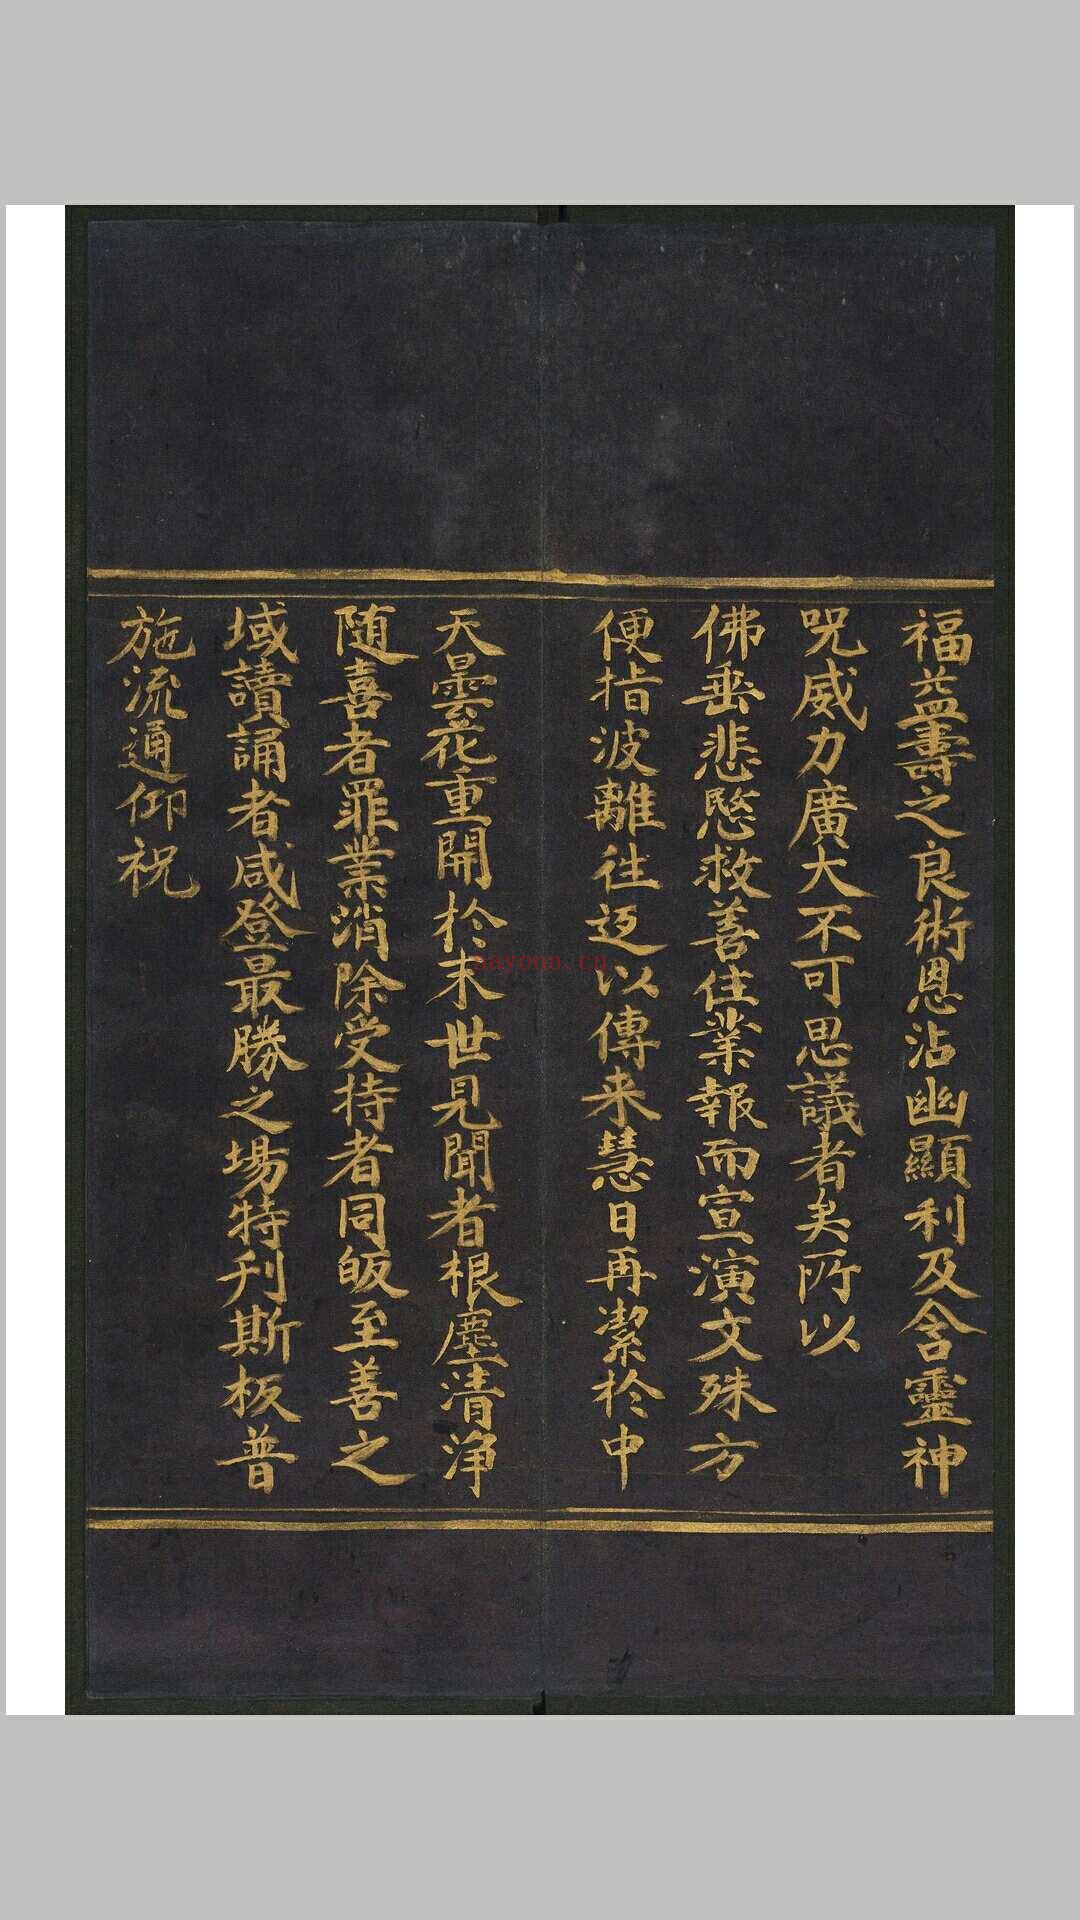 福益壽之良術恩沾幽顯利及含靈神
咒威力廣大不可思議者矣所以
佛垂悲愍救善住業報而宣演文殊方
便指波離往返以傳来慧日再潔於中
天曇花重開於末世見聞者根塵清淨
随喜者罪業消除受持者同皈至善之
域讀誦者咸登最勝之場特刋斯板普
施流通仰祝
nayona.cn